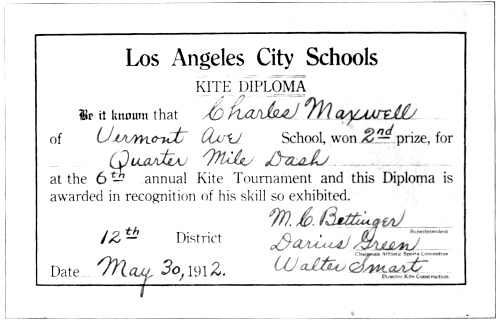 Los Angeles City Schools
KITE DIPLOMA
Be it known that Charles Maxwell
of Vermont Ave School, won 2nd prize, for
Quarter Mile Dash
at the 6th annual Kite Tournament and this Diploma is
awarded in recognition of his skill so exhibited.
M. C. Bettinger
Superintendent
12th District Darius Green
Chairman Athletic Sports Committee
Date May 30, 1912. Walter Smart
Director Kite Construction